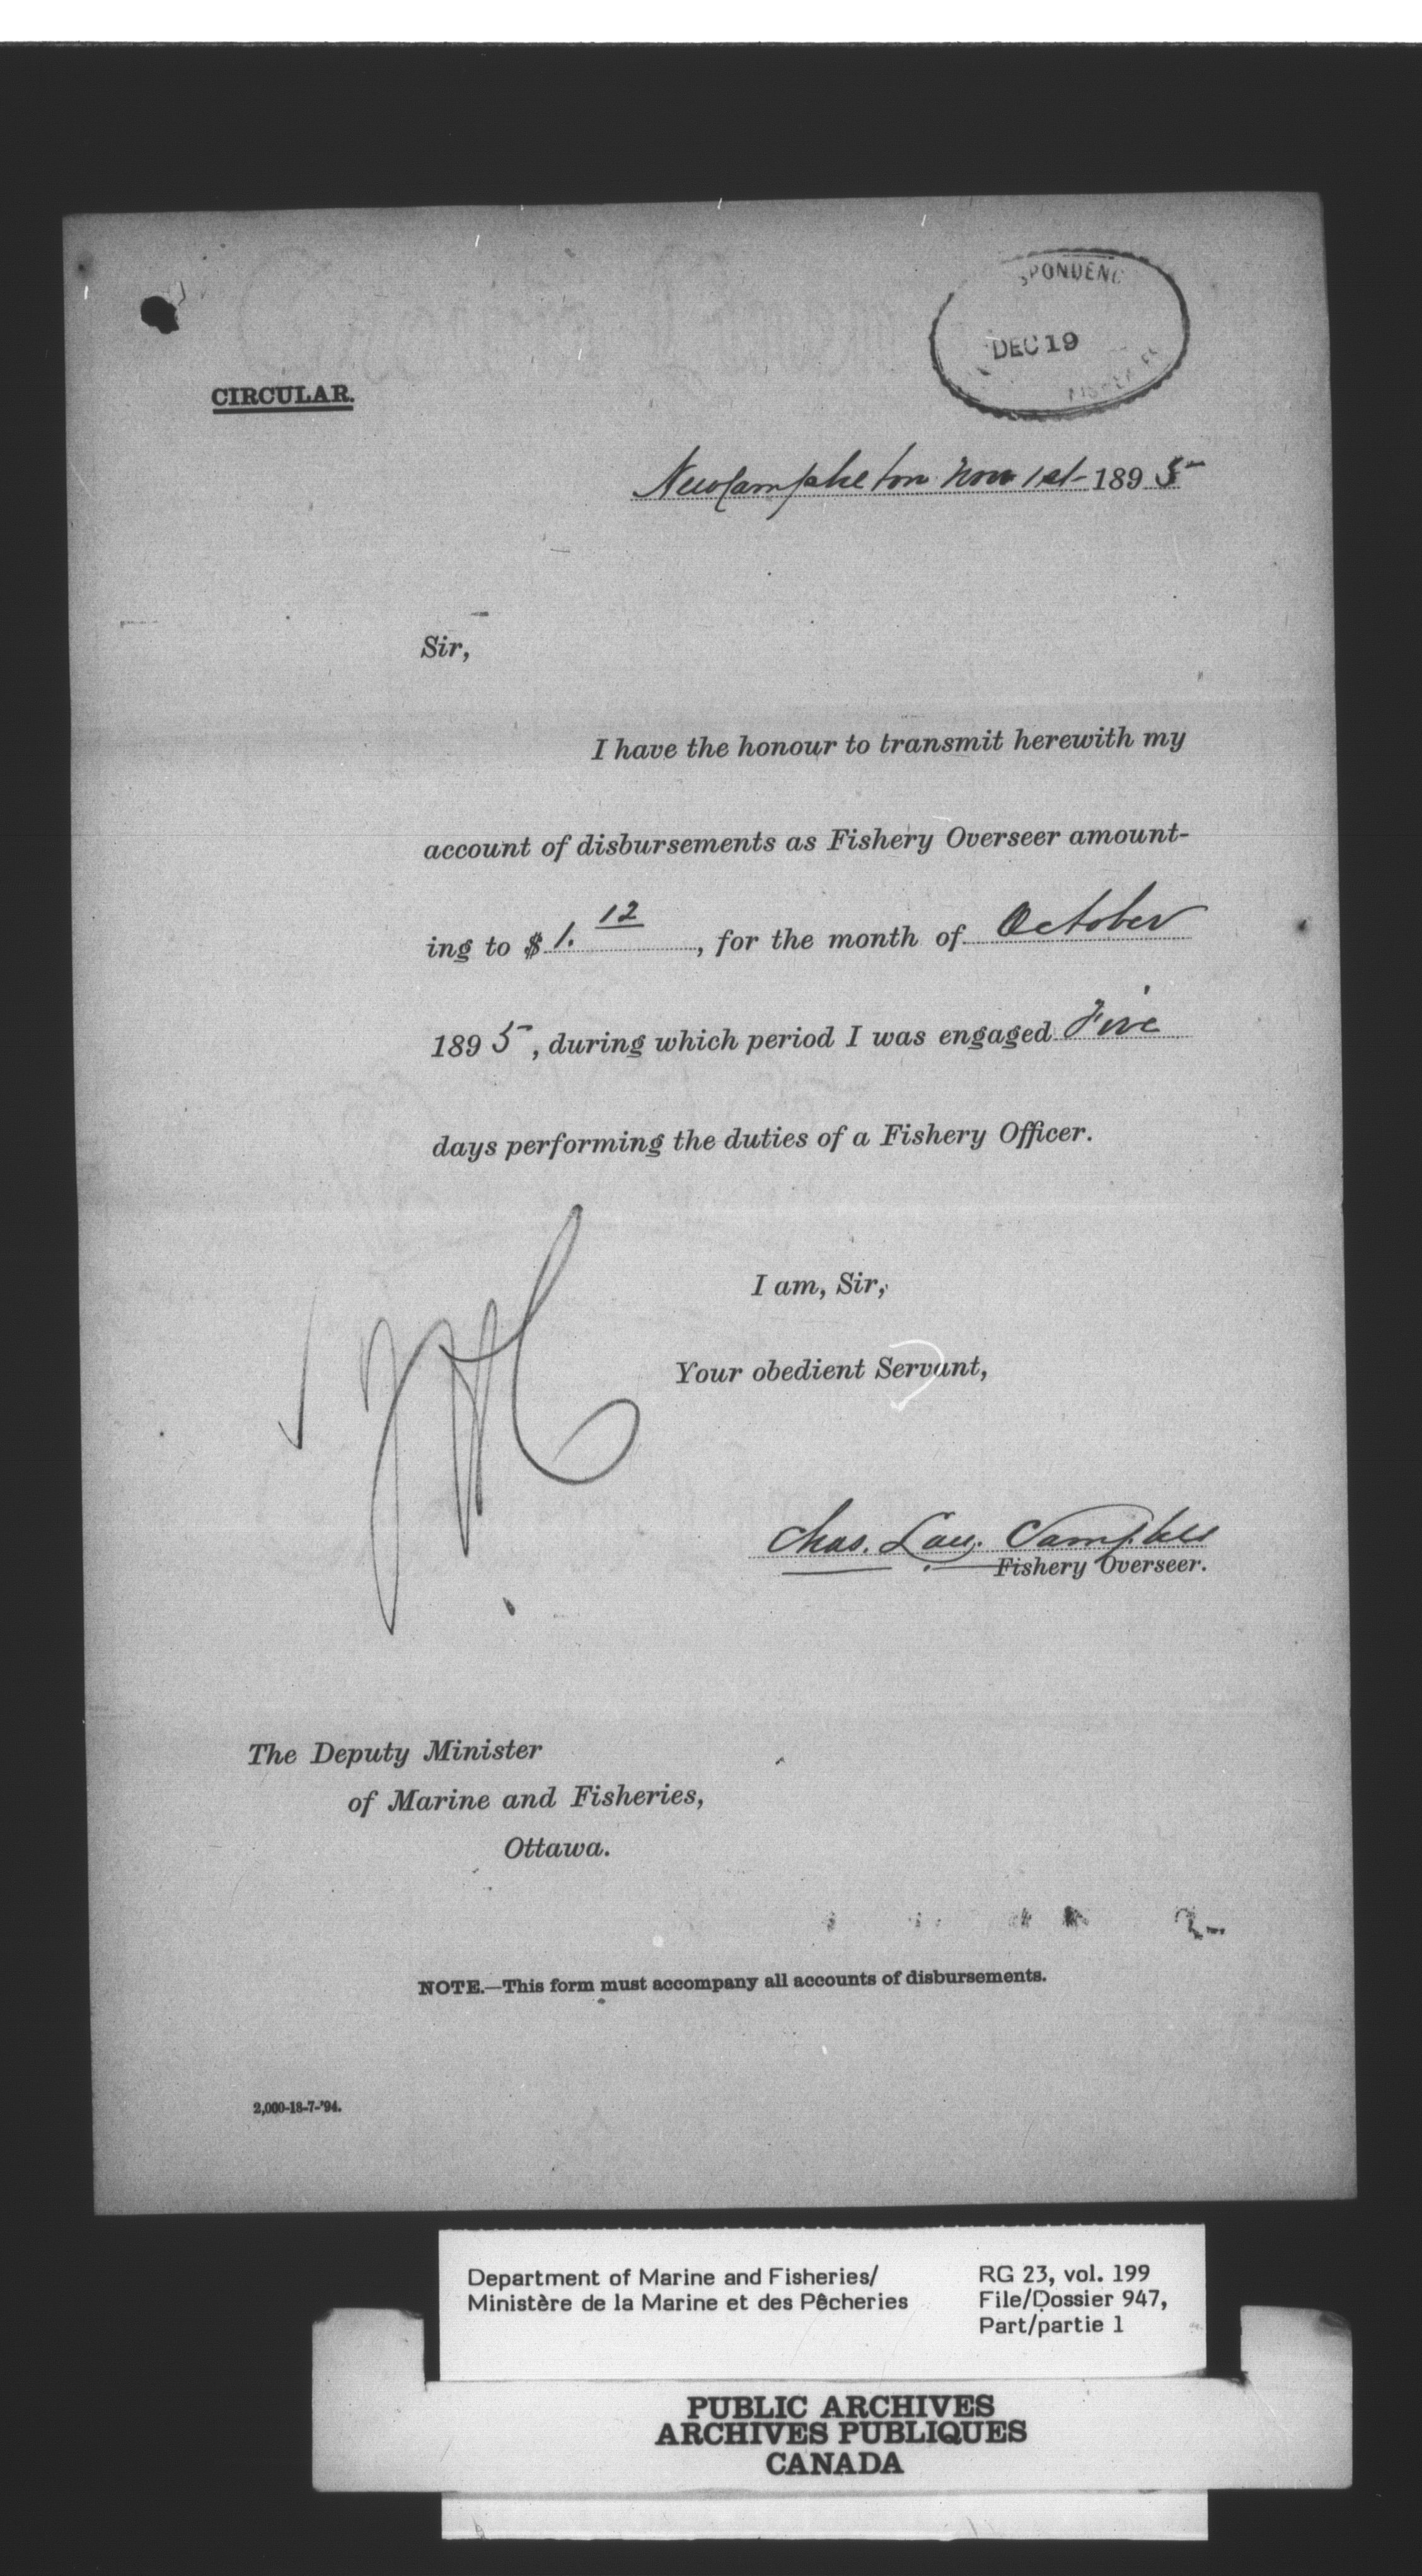 SPONDENC
DEC 19
CIRCULAR.
New Campbelton Nov 1st 1895
Sir,
I have the honour to transmit herewith my
account of disbursements as Fishery Overseer amount-
ing to $ 1. 12, for the month of October
1895, during which period I was engaged Five
days performing the duties of a Fishery Officer.
I am, Sir,
Your obedient Servant,
Chas. Campbell
Fishery Overseer.
The Deputy Minister
of Marine and Fisheries,
Ottawa.
NOTE.—This form must accompany all accounts of disbursements.
2,000-18-7-'94.
Department of Marine and Fisheries/
Ministère de la Marine et des Pêcheries
RG 23, vol. 199
File/Dossier 947,
Part/partie 1
PUBLIC ARCHIVES
ARCHIVES PUBLIQUES
CANADA